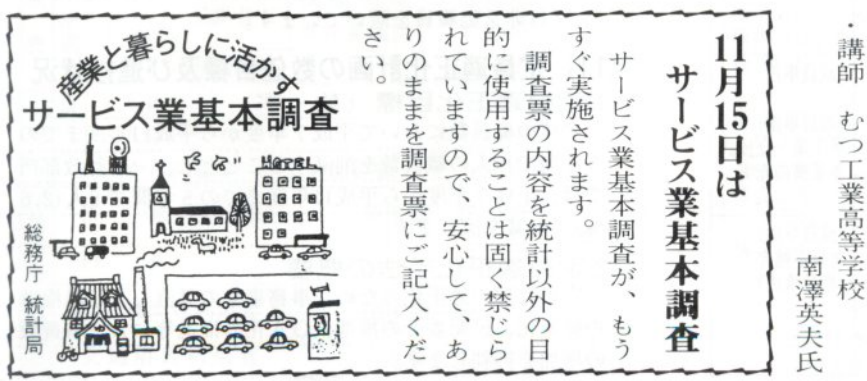 ・講師　むつ工業高等学校
南澤英夫氏
11月15日は
サービス業基本調査
サービス業基本調査が、もう
すぐ実施されます。
調査票の内容を統計以外の目
的に使用することは固く禁じら
れていますので、安心して、あ
りのままを調査票にご記入くだ
さい。
産業と暮らしに活かす
サービス業基本調査
HOTEL
総務庁 統計局